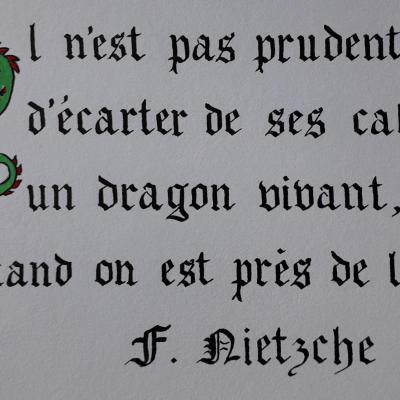 l n'est pas prudent
d'écarter de ses cal
un dragon vivant,
and on est près de l
F. Nietzche